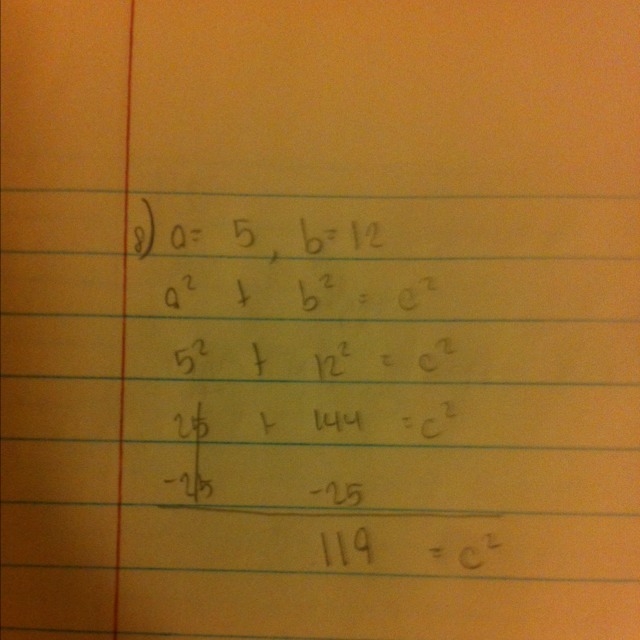 a) a= 5, b=12
a² + b² = c²
5² + 12² = c²
25 + 144 = c²
-25 -25
119 = c²